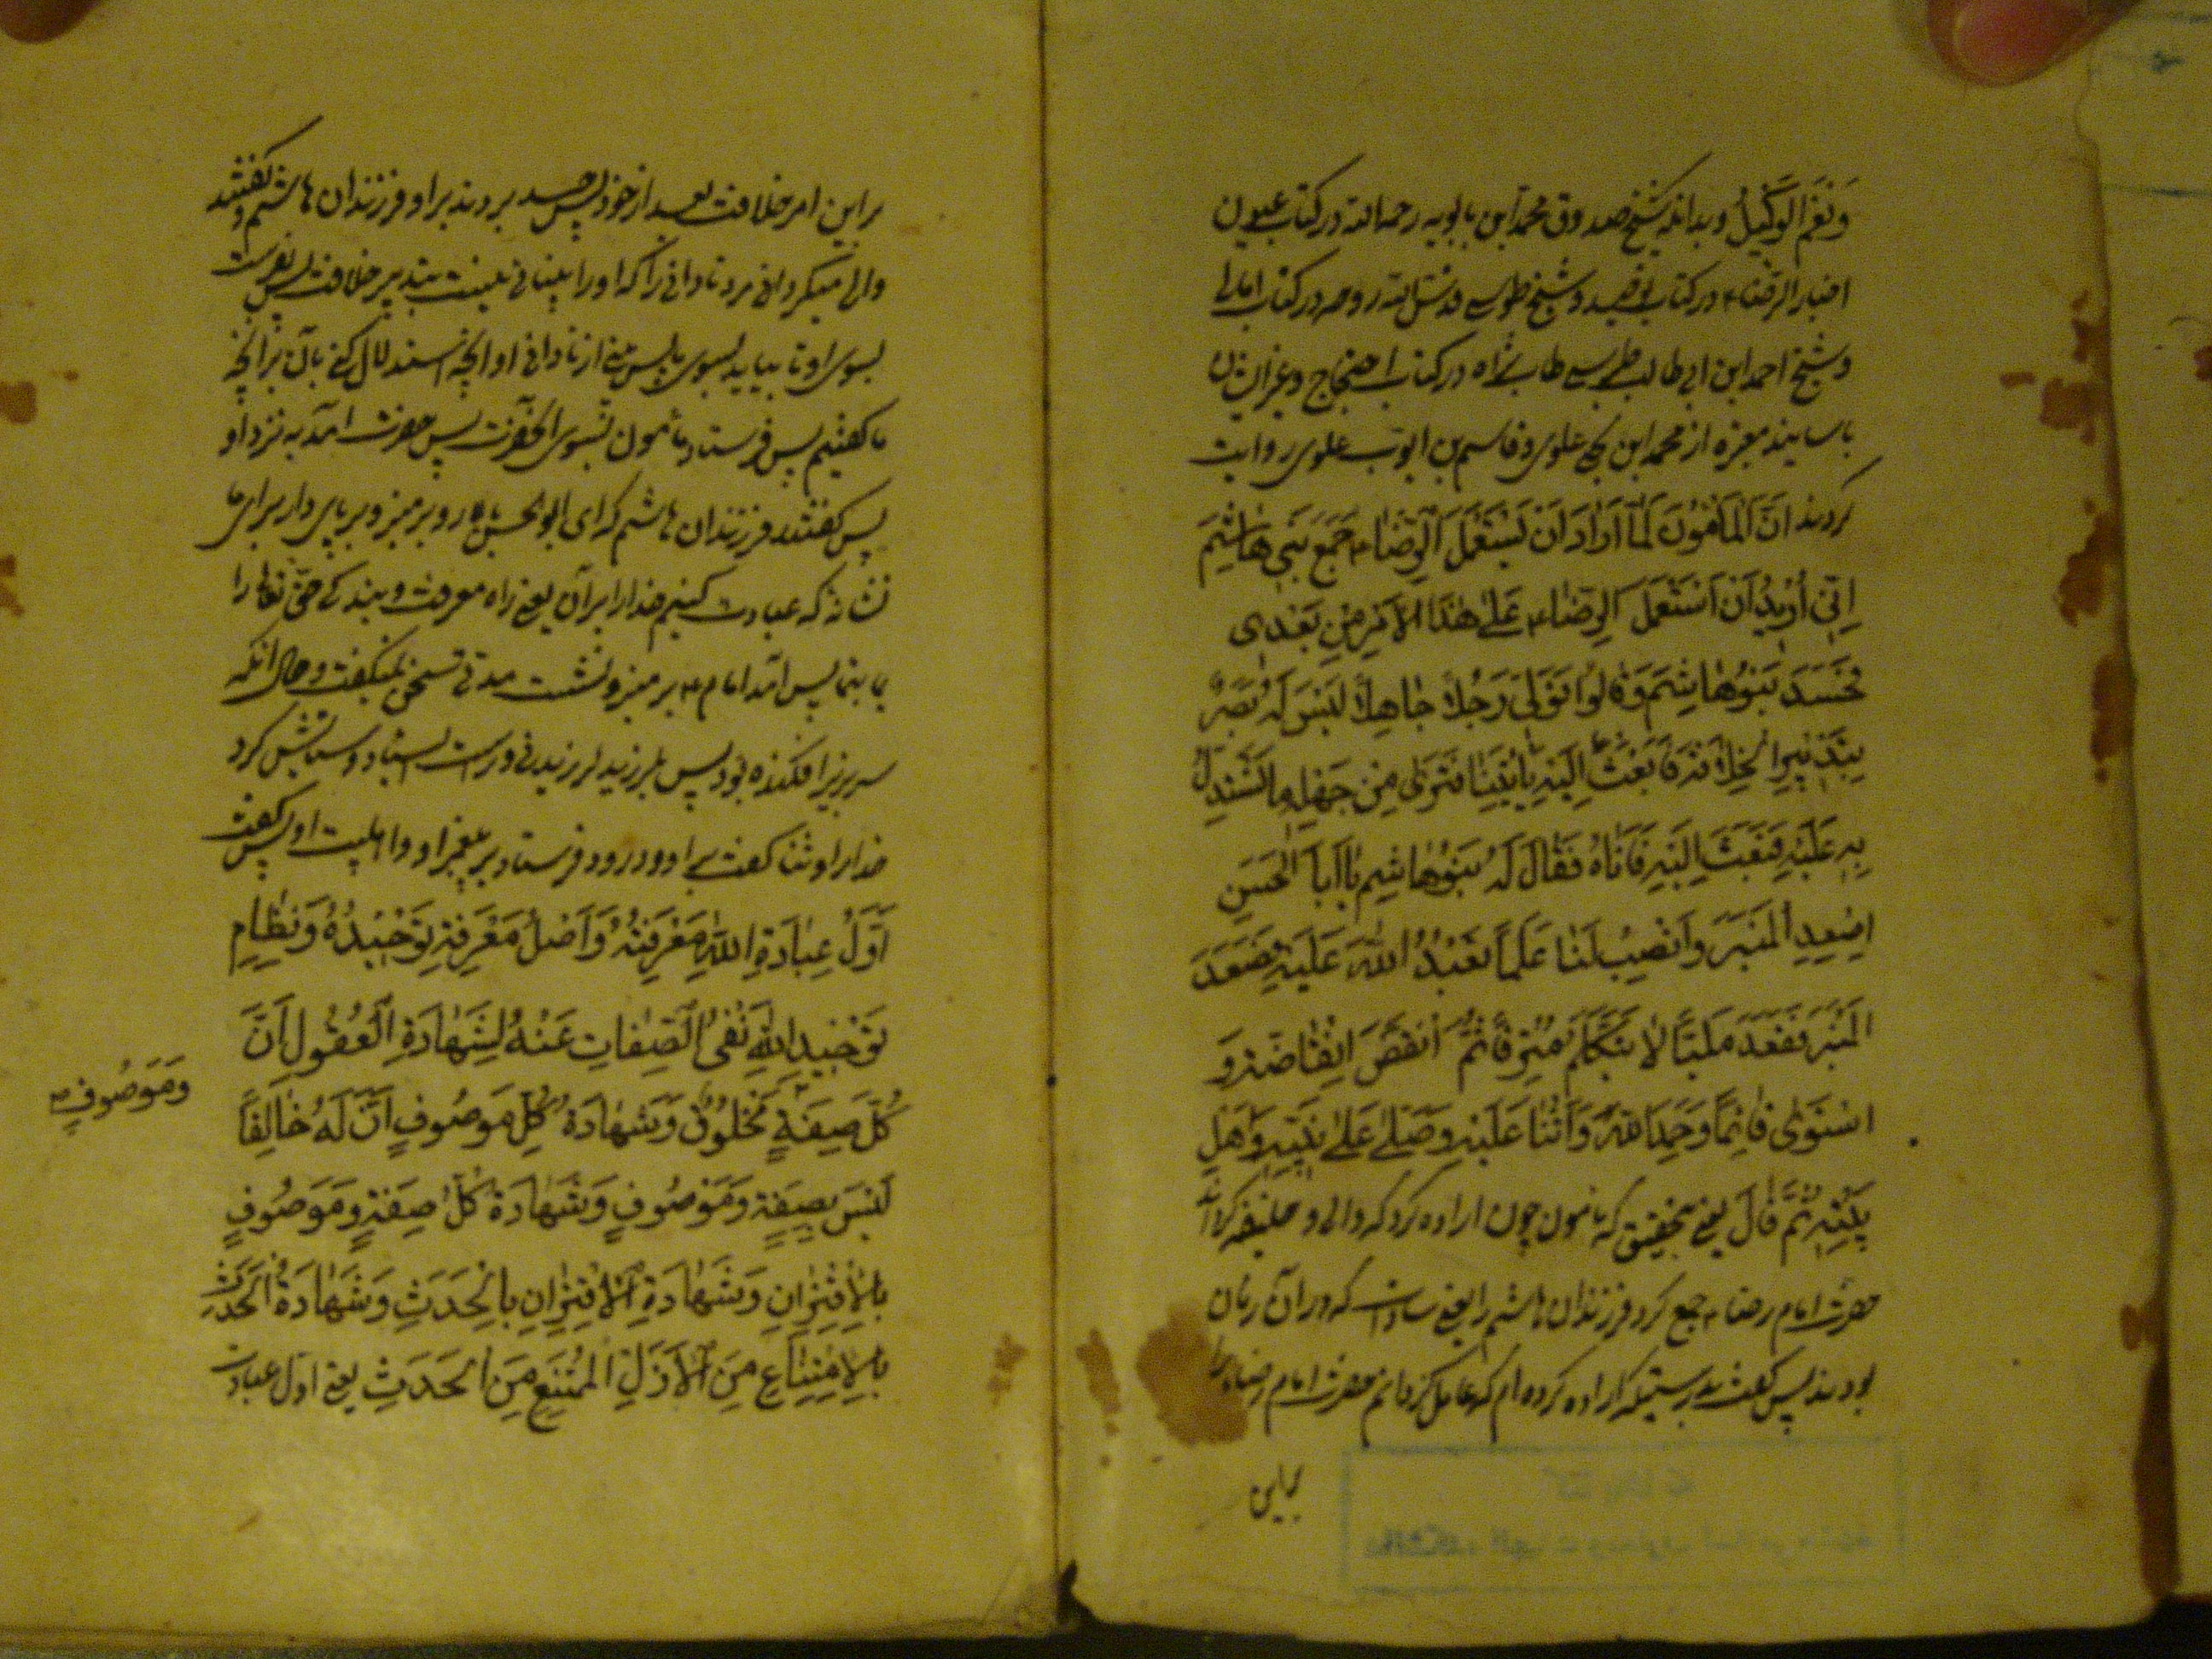 وَنِعْمَ الْوَكِيلُ وبدانكه شيخ صدوق محمد ابن بابويه رحمه الله در كتاب عيون
اخبار الرضا ع در كتاب و شيخ طوسى قدس الله روحه در كتاب امالى
و شيخ احمد ابن ابى طالب طبرسى طاب ثراه در كتاب احتجاج وغير ايشان
باسانيد معتبره از محمد ابن يحيى علوى و قاسم بن ايوب علوى روايت
كردند انَّ الْمَأمُونَ لَمَّا اَرَادَ اَنْ يَسْتَعْمِلَ الرِّضَاء جَمَعَ بَنِى هَاشِمَ
اِنِّى اُرِيدُ اَنْ اَسْتَعْمِلَ الرِّضَاء عَلَىٰ هٰذَا الْاَمْرِ مِنْ بَعْدِى
فَحَسَدَ بَنُوهَاشِمَ وَقَالُوا تُوَلِّى رَجُلاً جَاهِلاً لَيْسَ لَهُ بَصَرٌ
بِتَدْبِيرِ الْخِلَافَةِ فَابْعَثْ اِلَيْهِ يَأْتِينَا فَتَرَىٰ مِنْ جَهْلِهِ مَا تَسْتَدِلُّ
بِهِ عَلَيْهِ فَبَعَثَ اِلَيْهِ فَاَتَاهُ فَقَالَ لَهُ بَنُوهَاشِمِ يَا اَبَا الْحَسَنِ
اِصْعِدِ الْمَنْبَرَ وَانْصِبْ لَنَا عَلَماً نَعْبُدُ اللهَ عَلَيْهِ فَصَعَدَ
الْمَنْبَرَ فَقَعَدَ مَلِيّاً لَا يَتَكَلَّمُ ثُمَّ انْتَفَضَ اِنْتِفَاضَةً وَ
اسْتَوَىٰ قَائِماً وَحَمِدَ اللهَ وَاَثْنَا عَلَيْهِ وَصَلَّىٰ عَلَىٰ نَبِيِّهِ وَاَهْلِ
بَيْتِهِ ثُمَّ قَالَ يعنى بتحقيق كه مأمون چون اراده كرد كه والى و خليفه گرداند
حضرت امام رضا ع جمع كرد فرزندان هاشم را يعنى سادات كه در ان زمان
بودند پس گفت بدرستيكه اراده كرده ام كه عامل گردانم حضرت امام رضا ع را
براين
براين امر خلافت بعد از خود پس حسد بردند بر او فرزندان هاشم و گفتند
والى ميگردانى مرد نادانى را كه او را بينائى نيست بتدبير خلافت پس بفرست
بسوى او تا بيايد بسوى ما پس بينى از نادانى او آنچه استدلال كنى بآن بر آنچه
ما گفتيم پس فرستاد مأمون بسوى آنحضرت پس حضرت آمد به نزد او
پس گفتند فرزندان هاشم كه اى ابو الحسن بالا رو بر منبر و بر پاى دار براى ما
نشانه كه عبادت كنيم خدا را بر آن يعنى راه معرفت و بندگى حق تعالى را
بما بنما پس آمد امام ع بر منبر و نشست مدتى سخن نميگفت و حال انكه
سر بزير افكنده بود پس بلرزيد لرزيدنى و راست ايستاد و ستايش كرد
خدا را و ثنا گفت بر او و درود فرستاد بر پيغمبر او و اهلبيت او پس گفت
اَوَّلُ عِبَادَةِ اللهِ مَعْرِفَتُهُ وَاَصْلُ مَعْرِفَتِهِ تَوْحِيدُهُ وَنِظَامِ
تَوْحِيدِ اللهِ نَفْىُ الصِّفَاتِ عَنْهُ لِشَهَادَةِ الْعُقُولِ اَنَّ
كُلَّ صِفَةٍ مَخْلُوقٌ وَشَهَادَةُ كُلِّ مَوْصُوفٍ اَنَّ لَهُ خَالِقاً
وَمَوْصُوفٍ
لَيْسَ بِصِفَةٍ وَمَوْصُوفٍ وَشَهَادَةُ كُلِّ صِفَةٍ وَمَوْصُوفٍ
بِالْاِقْتِرَانِ وَشَهَادَةِ الْاِقْتِرَانِ بِالْحَدَثِ وَشَهَادَةُ الْحَدَثِ
بِالْاِمْتِنَاعِ مِنَ الْاَزَلِ الْمُمْتَنِعِ مِنَ الْحَدَثِ يعنى اول عبادت